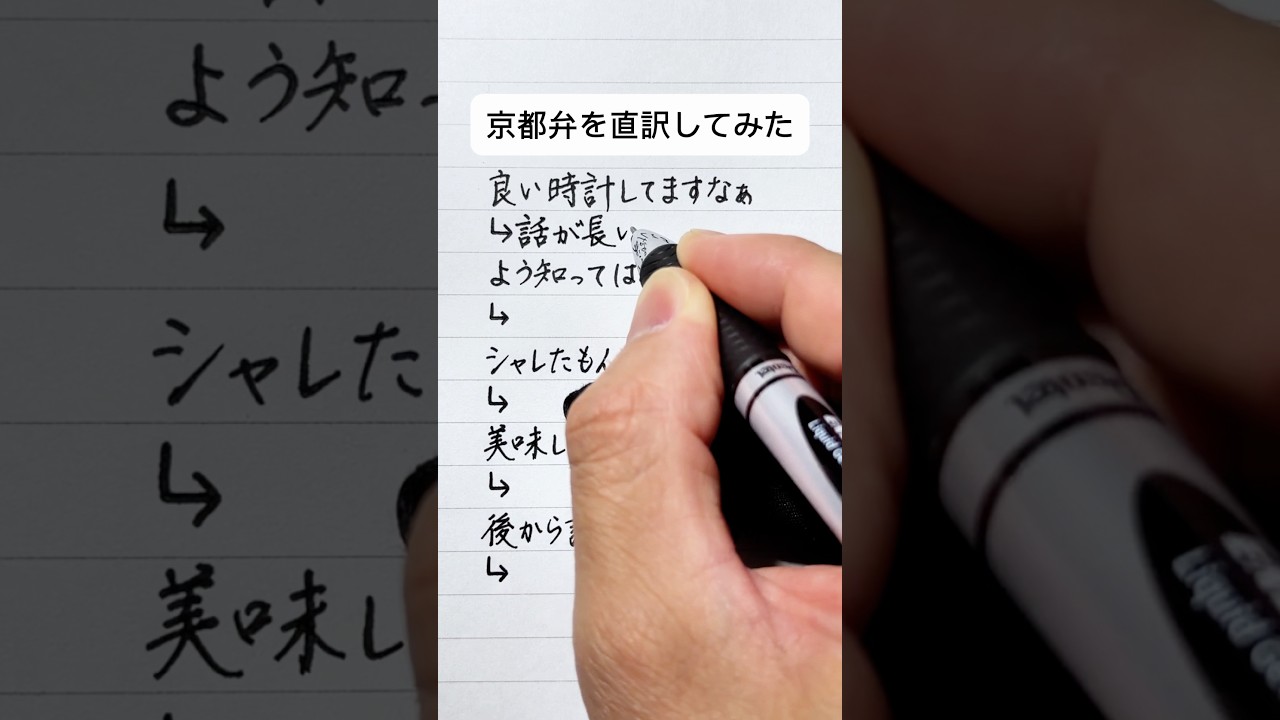 京都弁を直訳してみた
良い時計してますなぁ
↳話が長い
よう知っては
↳
シャレたもん
↳
美味し
↳
後から
↳